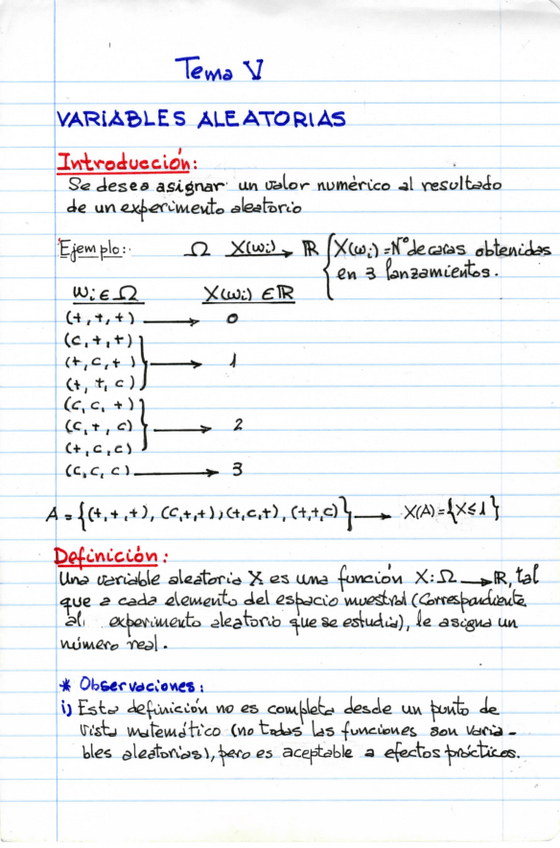 Tema V
VARIABLES ALEATORIAS
Introducción:
Se desea asignar un valor numérico al resultado
de un experimento aleatorio
Ejemplo:. Ω X(ωi) → ℝ { X(ωi)=Nº de caras obtenidas
en 3 lanzamientos.
Wi ∈ Ω X(ωi) ∈ ℝ
(+,+,+) → 0
(c,+,+)
(+,c,+) } → 1
(+,+,c)
(c,c,+)
(c,+,c) } → 2
(+,c,c)
(c,c,c) → 3
A = {(+,+,+), (c,+,+), (+,c,+), (+,+,c)} → X(A)={X≤1}
Definición:
Una variable aleatoria X es una función X:Ω → ℝ, tal
que a cada elemento del espacio muestral (Correspondiente
al experimento aleatorio que se estudia), le asigna un
número real.
* Observaciones:
i) Esta definición no es completa desde un punto de
vista matemático (no todas las funciones son varia-
bles aleatorias), pero es aceptable a efectos prácticos.